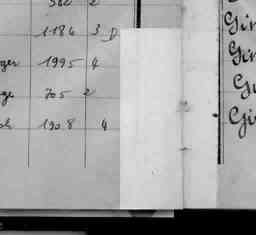 562 2
1184 3 D
ger 1995 4
ge 705 2
ch 1908 4
Gir
Gir
Gi
Gi